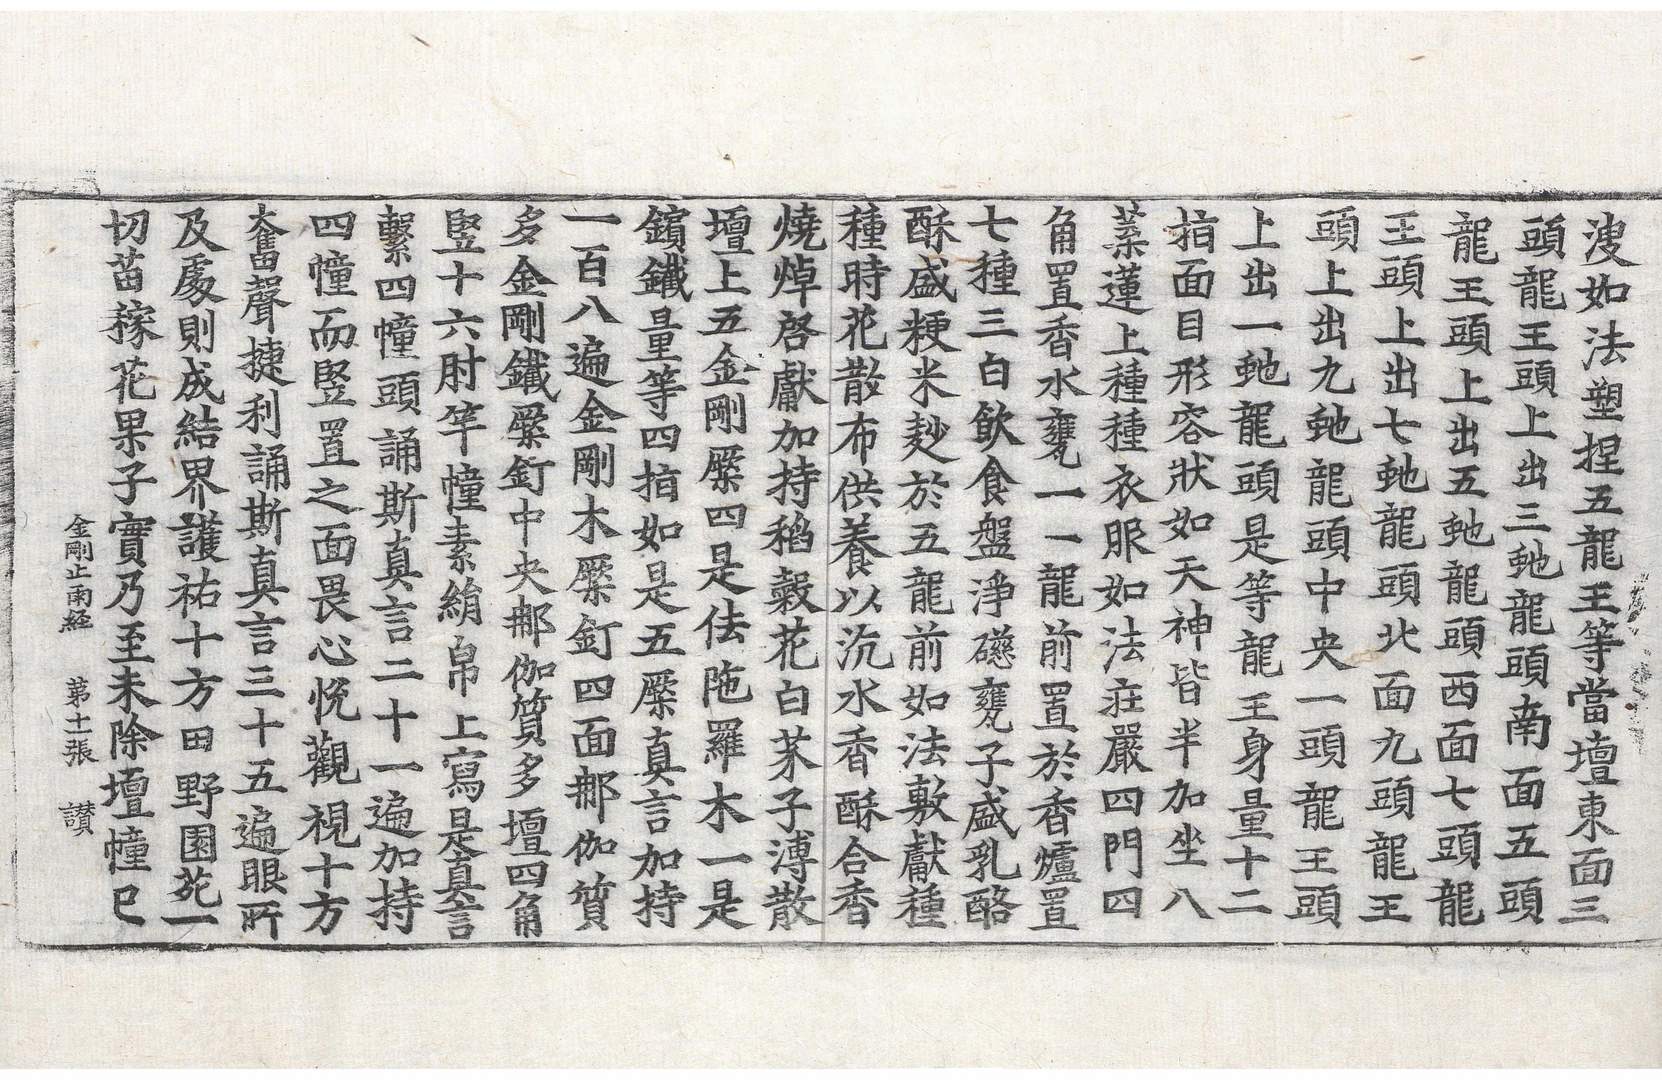 溲如法塑捏五龍王等當壇東面三
頭龍王頭上出三虵龍頭南面五頭
龍王頭上出五虵龍頭西面七頭龍
王頭上出七虵龍頭北面九頭龍王
頭上出九虵龍頭中央一頭龍王頭
上出一虵龍頭是等龍王身量十二
指面目形容狀如天神皆半加坐八
葉蓮上種種衣服如法莊嚴四門四
角置香水甕一一龍前置於香爐置
七種三白飲食盤淨磁甕子盛乳酪
酥盛粳米麨於五龍前如法敷獻種
種時花散布供養以沉水香酥合香
燒焯啓獻加持稻穀花白芥子溥散
壇上五金剛橜四是佉陁羅木一是
鑌鐵量等四指如是五橜真言加持
一百八遍金剛木橜釘四面郍伽質
多金剛鐵橜釘中央郍伽質多壇四角
竪十六肘竿幢素絹帛上寫是真言
繫四幢頭誦斯真言二十一遍加持
四幢而竪置之面畏心悅觀視十方
奮聲捷利誦斯真言三十五遍眼所
及處則成結界護祐十方田野園苑一
切苗稼花果子實乃至未除壇幢已
金剛止雨經 第十一張 讃